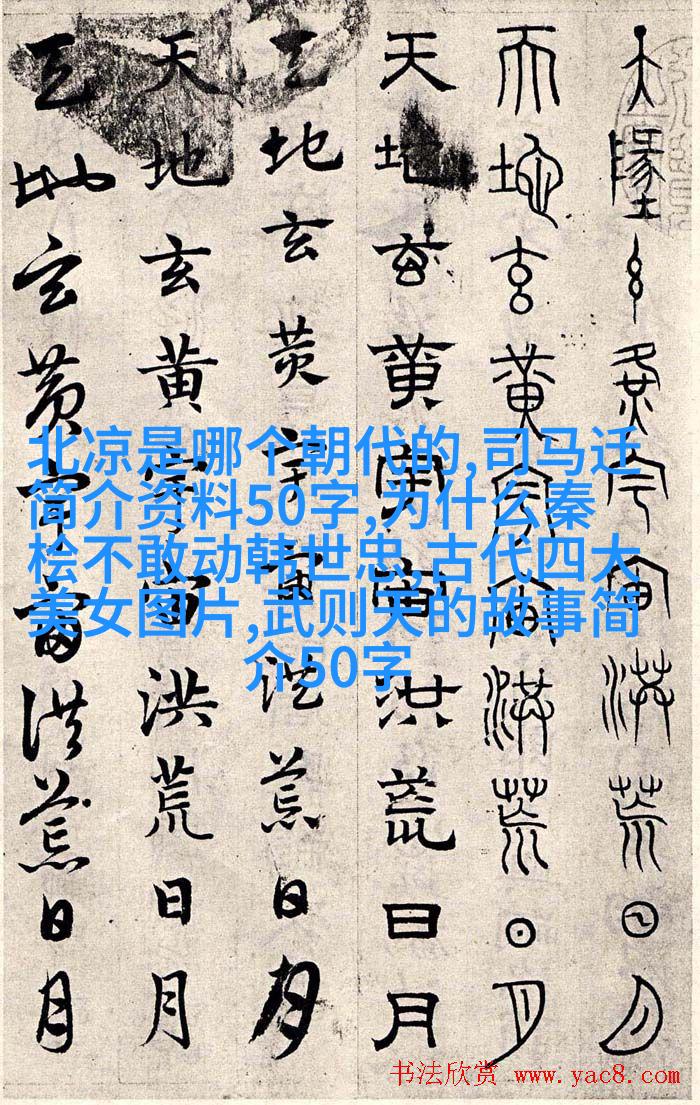 天地玄黄宇宙洪荒日月
天地玄黄宇宙洪荒日月
天地玄黄宇宙洪荒日月
天地玄黄宇宙洪荒日月
天地玄黄宇宙洪荒日月
天地玄黄宇宙洪荒日月
北凉是哪个朝代的,司马迁
简介资料50字,为什么秦
桧不敢动韩世忠,古代四大
美女图片,武则天的故事简
介50字
书法欣赏 www.yac8.com